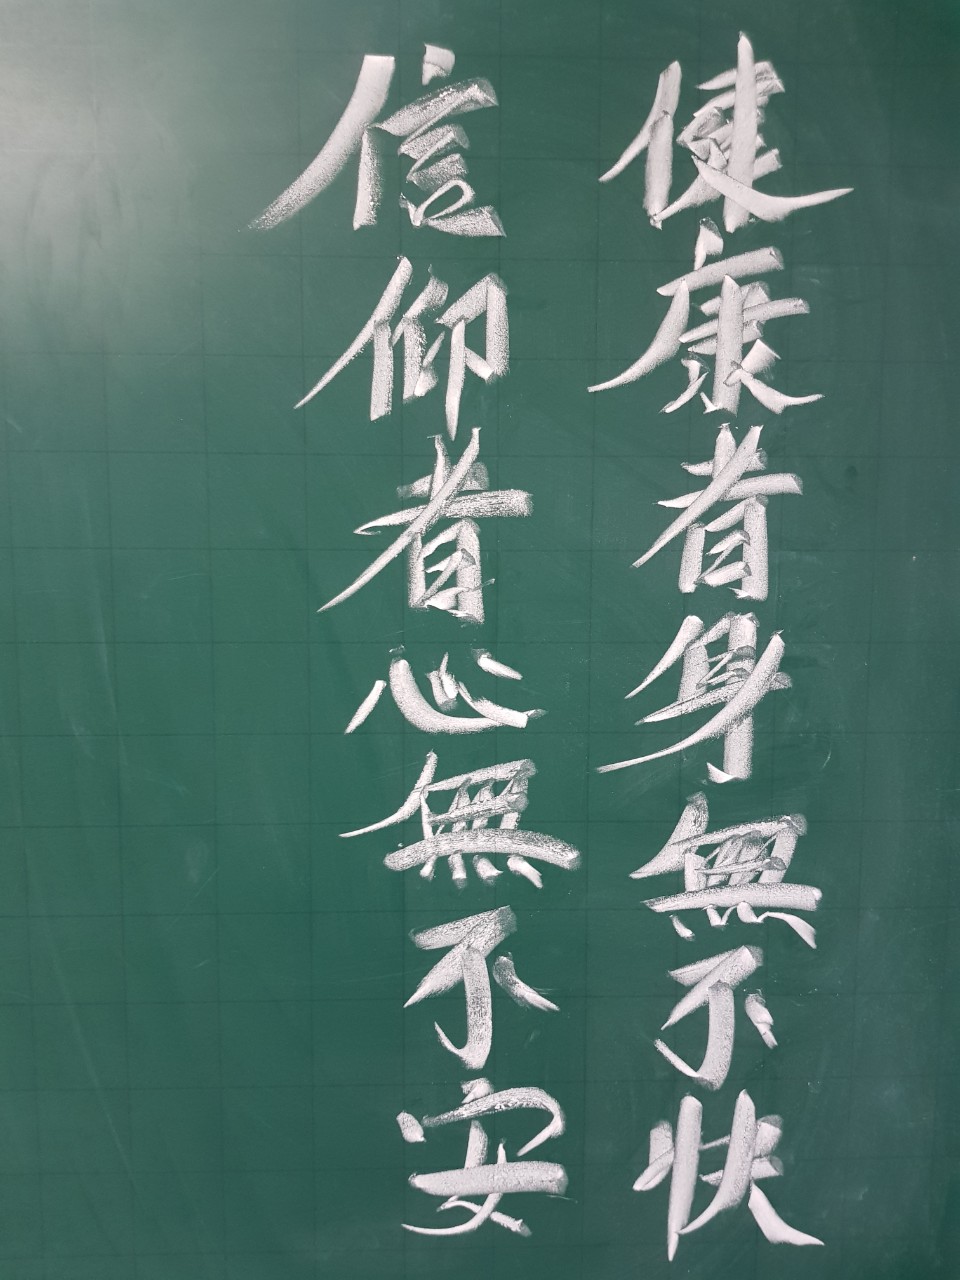 健康者身無不快
信仰者心無不安